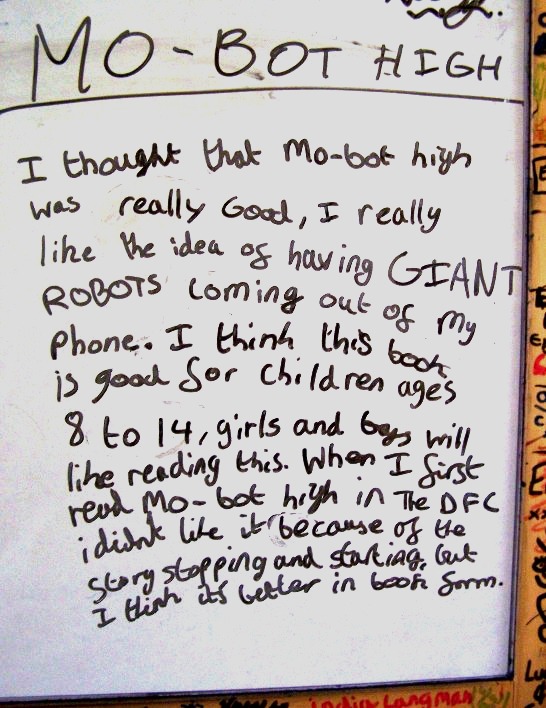 MO-BOT HIGH
I thought that Mo-bot high
was really Good, I really
like the idea of having GIANT
ROBOTS coming out of my
phone. I think this book
is good for children ages
8 to 14, girls and boys will
like reading this. When I first
read Mo-bot high in The DFC
i didnt like it because of the
story stopping and starting, but
I think it's better in book form.
India Langman